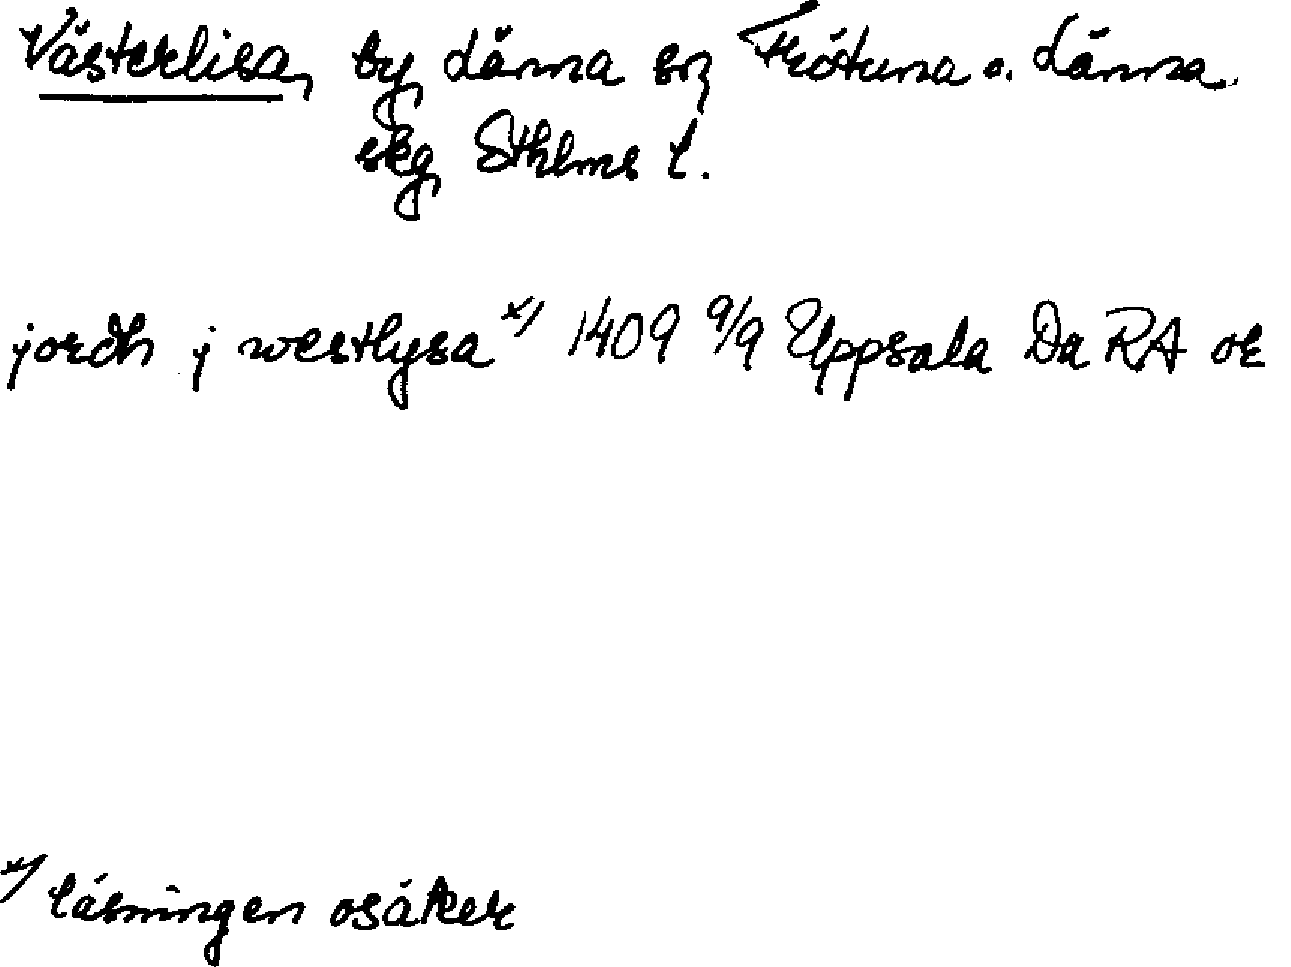 Västerlisa, by Länna sn, Frötuna o. Länna
skg, Sthlms l.
jordh j westlysa x) 1409 9/9 Uppsala Da RA or
x) läsningen osäker